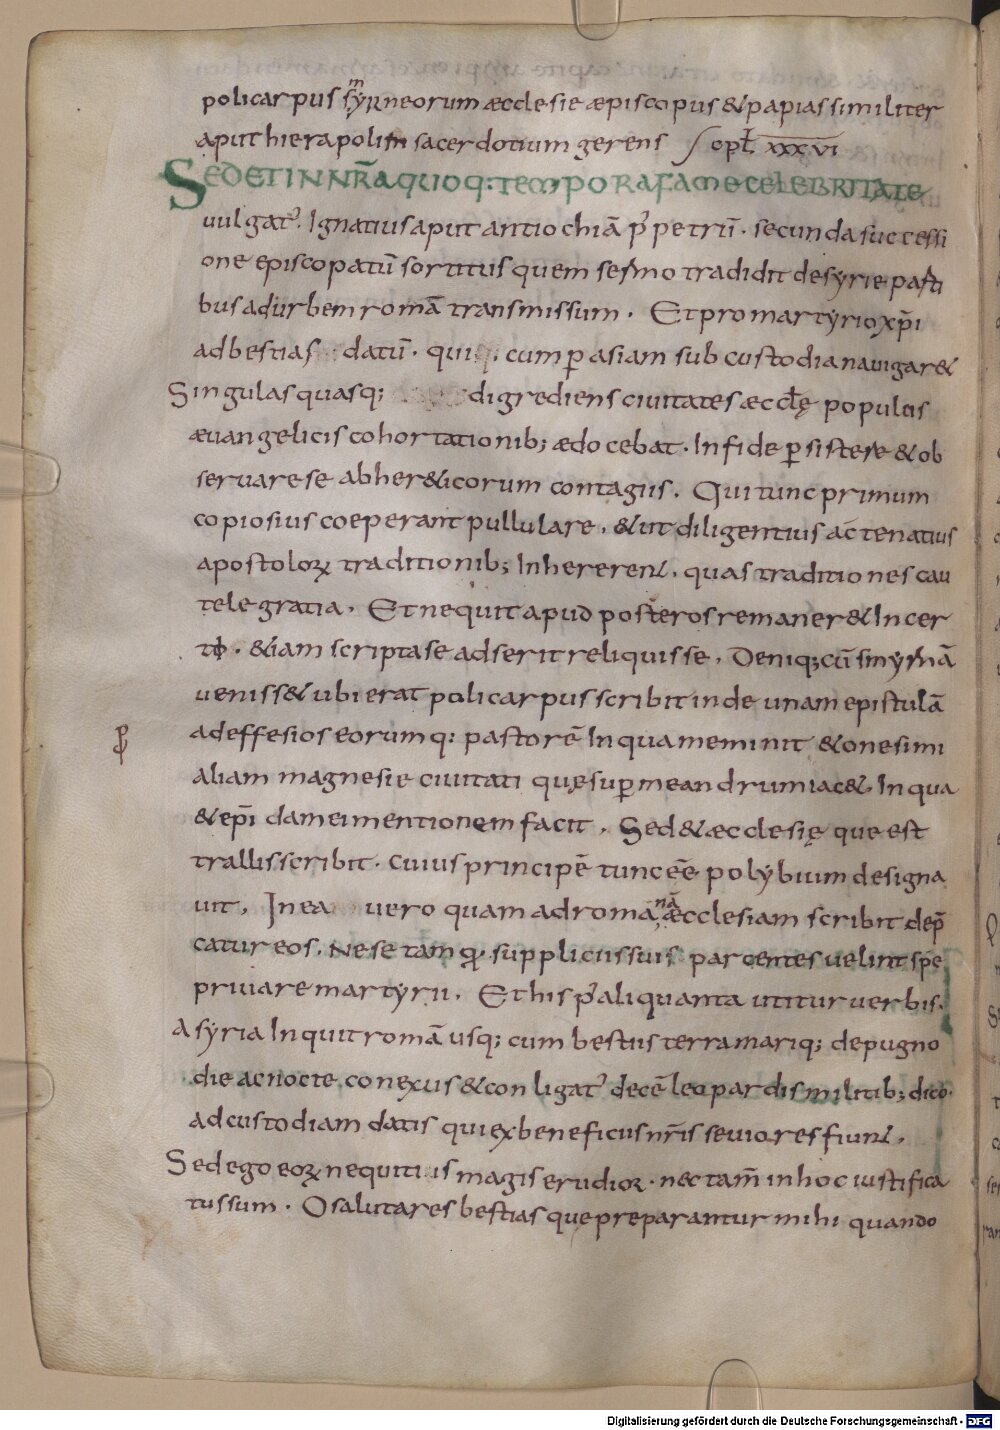 policarpus smyrneorum æcclesie æpiscopus & papias similiter
aput hierapolim sacerdotium gerens ſ optł xxxvi
SED ET IN NR̄A QUOQ: TEMPORA FAME CELEBRITATE
uulgat᷒. Ignatius aput antiochiā p᷒ petrū. secunda successi
one episcopatū sortitus quem sermo tradidit de syrie parti
bus ad urbem romā transmissum. Et pro martyrio xp̄i
ad bestias datū. qui cum ꝑ asiam sub custodia nauigar&
Singulas quasq; digrediens ciuitates æccl̄ę populus
æuangelicis cohortationib; ædocebat. In fide ꝑsistere & ob
seruare se ab her&icorum contagiis. Qui tunc primum
copiosius coeperant pullulare. & ut diligentius ac tenatius
apostoloꝝ traditionib; Inhererent. quas traditiones cau
tele gratia. Et ne quit apud posteros remaner& Incer
to. &iam scriptas se adserit reliquisse. Deniq; cū smyrnā
uenisset ubi erat policarpus scribit inde unam epistulā
ad effesios eorumq: pastorē In qua meminit & onesimi
aliam magnesie ciuitati quę suꝑ meandrum iac&. In qua
& ep̄i damei mentionem facit. Sed & æcclesię que est
trallis scribit. cuius principē tunc eē̄ polybium designa
uit. In ea uero quam ad romanā æcclesiam scribit dep̄
catur eos. Ne se tamꝙ suppliciis suis parcentes uelint spe
priuare martyrii. Et his p᷒ aliquanta utitur uerbis.
A syria Inquit romā usq; cum bestiis terra mariq; depugno
die ac nocte. conexus & conligat᷒ decē leopardis militib; dico.
ad custodiam datis qui ex beneficiis nr̄is seuiores fiunt.
Sed ego eoꝝ nequitiis magis erudior. nec tam̄ in hoc iustifica
tus sum. O salutares bestias quę preparantur mihi quando
Digitalisierung gefördert durch die Deutsche Forschungsgemeinschaft - DFG